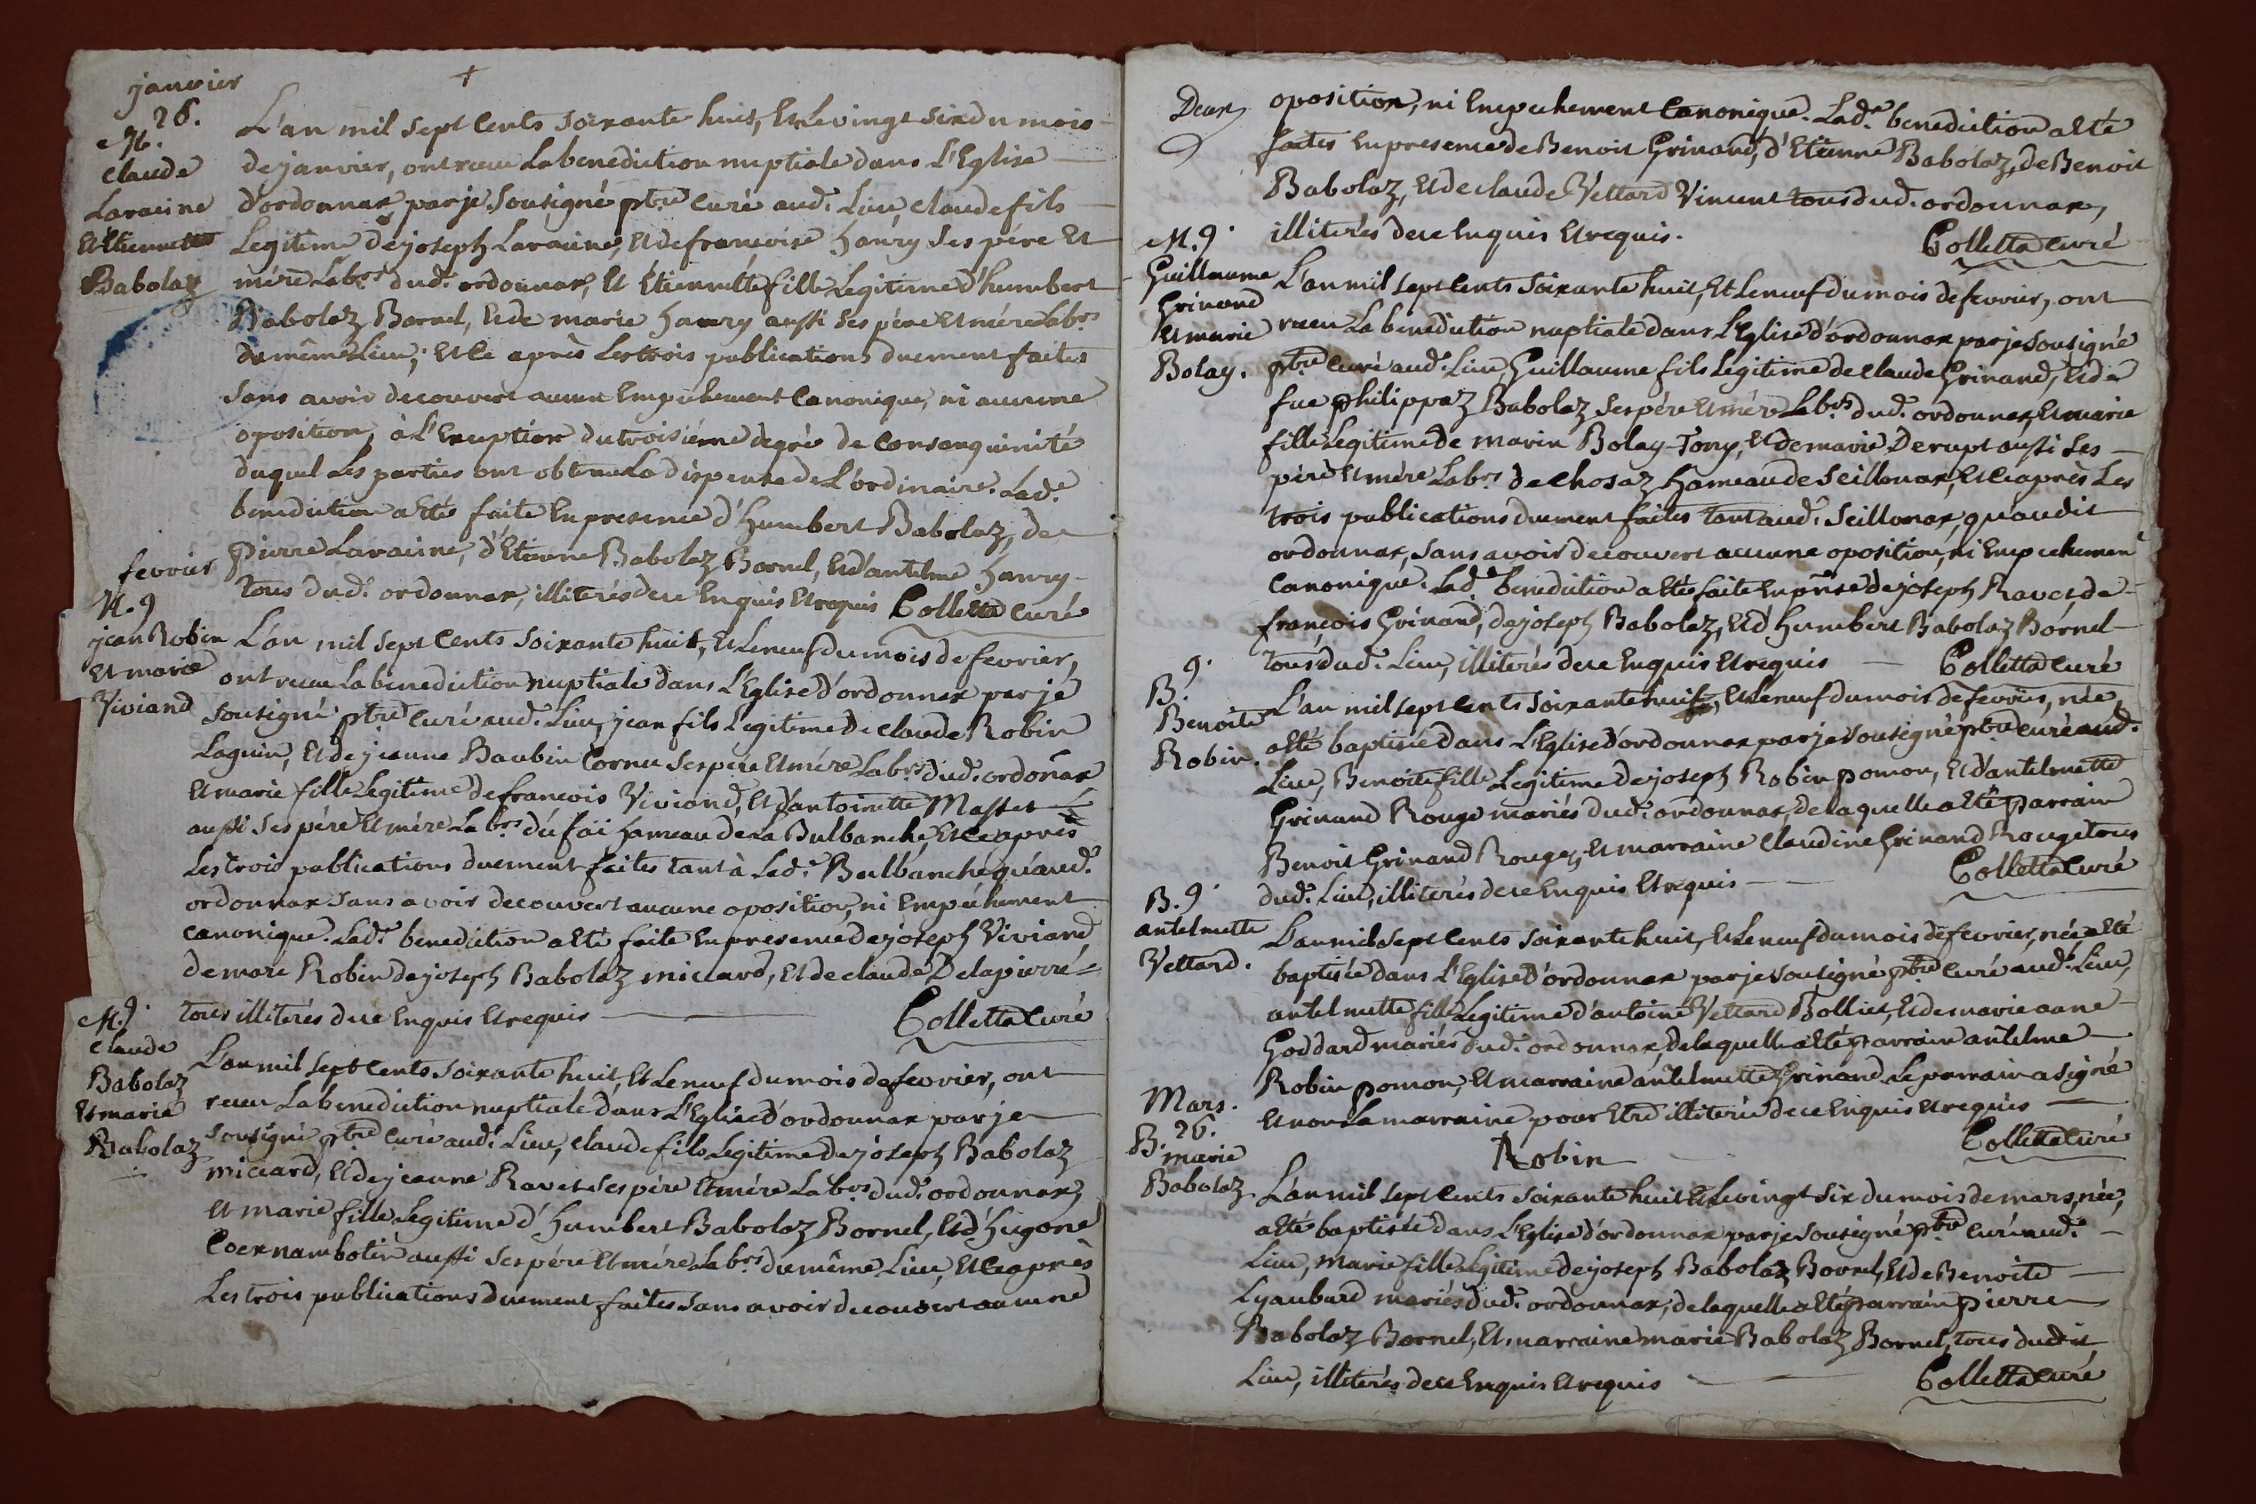 janvier
26.
M.
claude
Laracine
Et Etiennette
Babolaz
L'an mil sept Cents soixante huit, Et Le vingt six du mois
de janvier, ont reçeu La benediction nuptiale dans L'Eglise
d'ordonnax par je sousigné ptre Curé aud.t Lieu, claude fils
Legitime de joseph Laracine, Et de francoise hanry ses pére Et
mére Lab.rs dud.t ordonnax, Et Étiennette fille Legitime d'humbert
Babolaz Bornel, Et de marie hanry aussi ses pére Et mére Lab.rs
du même Lieu; Et Ce après Les trois publications duement faites
sans avoir decouvert aucun Empêchement Canonique, ni aucune
oposition, à L'Exeption du troisiéme degré de Consanguinité
duquel Les parties ont obtenu La dispense de L'ordinaire. Lad.e
benediction a Eté faite En presence d'humbert Babolaz, de
pierre Laracine, d'Etienne Babolaz Bornel, Et d'antelme hanry
tous dud.t ordonnax, illiterés de ce Enquis Et requis Colletta Curé
fevrier
M. 9
jean Robin
Et marie
Viviand
L'an mil sept Cents soixante huit, Et Le neuf du mois de fevrier,
ont receu La benediction nuptiale dans L'Eglise d'ordonnax par je
sousigné ptre Curé aud.t Lieu, jean fils Legitime de claude Robin
Laguin, Et de jeanne Baubin Cornu ses pére Et mére Lab.rs dud.t ordonax
Et marie fille Legitime de francois Viviand, Et d'antoinette Masset
aussi ses pére Et mére Lab.rs du fäi hameau de La Bulbanche, Et Ce après
Les trois publications duement faites tant à Lad.e Bulbanche qu'aud.t
ordonnax sans avoir decouvert aucune oposition, ni Empêchement
canonique. Lad.e benediction a Eté faite En presence de joseph Viviand
de marc Robin de joseph Babolaz miccard, Et de claude Delapierre
tous illiterés de ce Enquis Et requis Colletta Curé
M. 9.
Claude
Babolaz
Et marie
Babolaz
L'an mil sept Cents soixante huit, Et Le neuf du mois de fevrier, ont
receu La benediction nuptiale dans L'Eglise d'ordonnax par je
sousigné ptre Curé aud.t Lieu, claude fils Legitime de jóseph Babolaz
miccard, Et de jeanne Ravet ses pére Et mére Lab.rs dud.t ordonnax,
Et marie fille Legitime d'humbert Babolaz Bornel, Et d'hugoné
Coexnambotin aussi ses pére Et mére Lab.rs du même Lieu, Et Ce après
Les trois publications duement faites sans avoir decouvert aucune
Deux
oposition, ni Empechement Canonique. Lad.e benediction a Eté
faites En presence de Benoit Grinand, d'Etienne Babolaz, de Benoit
Babolaz, Et de claude Vettard Vincent tous dud.t ordonnax,
illiterés de ce Enquis Et requis. Colletta Curé
M. 9.
Guillaume
Grinand
Et marie
Bolay.
L'an mil sept Cents soixante huit, Et Le neuf du mois de fevrier, ont
receu La benediction nuptiale dans L'Eglise d'ordonnax par je sousigné
ptre Curé aud.t Lieu, Guillaume fils Legitime de claude Grinand, Et de
fue philippaz Babolaz ses pére Et mére Lab.rs dud.t ordonnax, Et marie
fille Legitime de marin Bolay-Tony, Et de marie Derupt aussi ses
pére Et mére Lab.rs de chosaz hameau de Seillonax, Et Ce après Les
trois publications duement faites tant aud.t Seillonax, qu'audit
ordonnax, sans avoir decouvert aucune oposition, ni Empechement
Canonique. Lad.e benediction a Eté faite En prnse de joseph Ravet, de
françois Grinand, de joseph Babolaz, Et d'humbert Babolaz Bornel
tous dud.t Lieu, illiterés de ce Enquis Et requis Colletta Curé
9.
B.
Benoite
Robin.
L'an mil sept Cents soixante huit, Et Le neuf du mois de fevrier, née,
a Eté baptisée dans L'Eglise d'ordonnax par je sousigné ptre Curé aud.t
Lieu, Benoite fille Legitime de joseph Robin pomon, Et d'antelmette
Grinand Rouge mariés dud.t ordonnax, de laquelle a Eté parrain
Benoit Grinand Rouge, Et marraine claudine Grinand Rouge tous
dud.t Lieu, illiterés de ce Enquis Et requis Colletta Curé
B. 9.
antelmette
Vettard.
L'an mil sept Cents soixante huit, Et Le neuf du mois de fevrier, née, a Eté
baptisée dans L'Eglise d'ordonnax par je sousigné ptre Curé aud.t Lieu,
antelmette fille Legitime d'antoine Vettard Bolliet, Et de marie anne
Goddard mariés dud.t ordonnax, de laquelle a Eté parrain antelme
Robin pomon, Et marraine antelmette Grinand. Le parrain a signé
Et non La marraine pour Etre illiterée de ce Enquis Et requis
Robin Colletta Curé
Mars.
26.
B.
marie
Babolaz
L'an mil sept Cents soixante huit Et Le vingt six du mois de mars, née,
a Eté baptisée dans L'Eglise d'ordonnax par je sousigné ptre Curé aud.t
Lieu, marie fille Legitime de joseph Babolaz Bornel, Et de Benoite
Lyaubard mariés dud.t ordonnax, de laquelle a Eté parrain pierre
Babolaz Bornel, Et marraine marie Babolaz Bornel, tous dudit
Lieu, illiterés de ce Enquis Et requis Colletta Curé